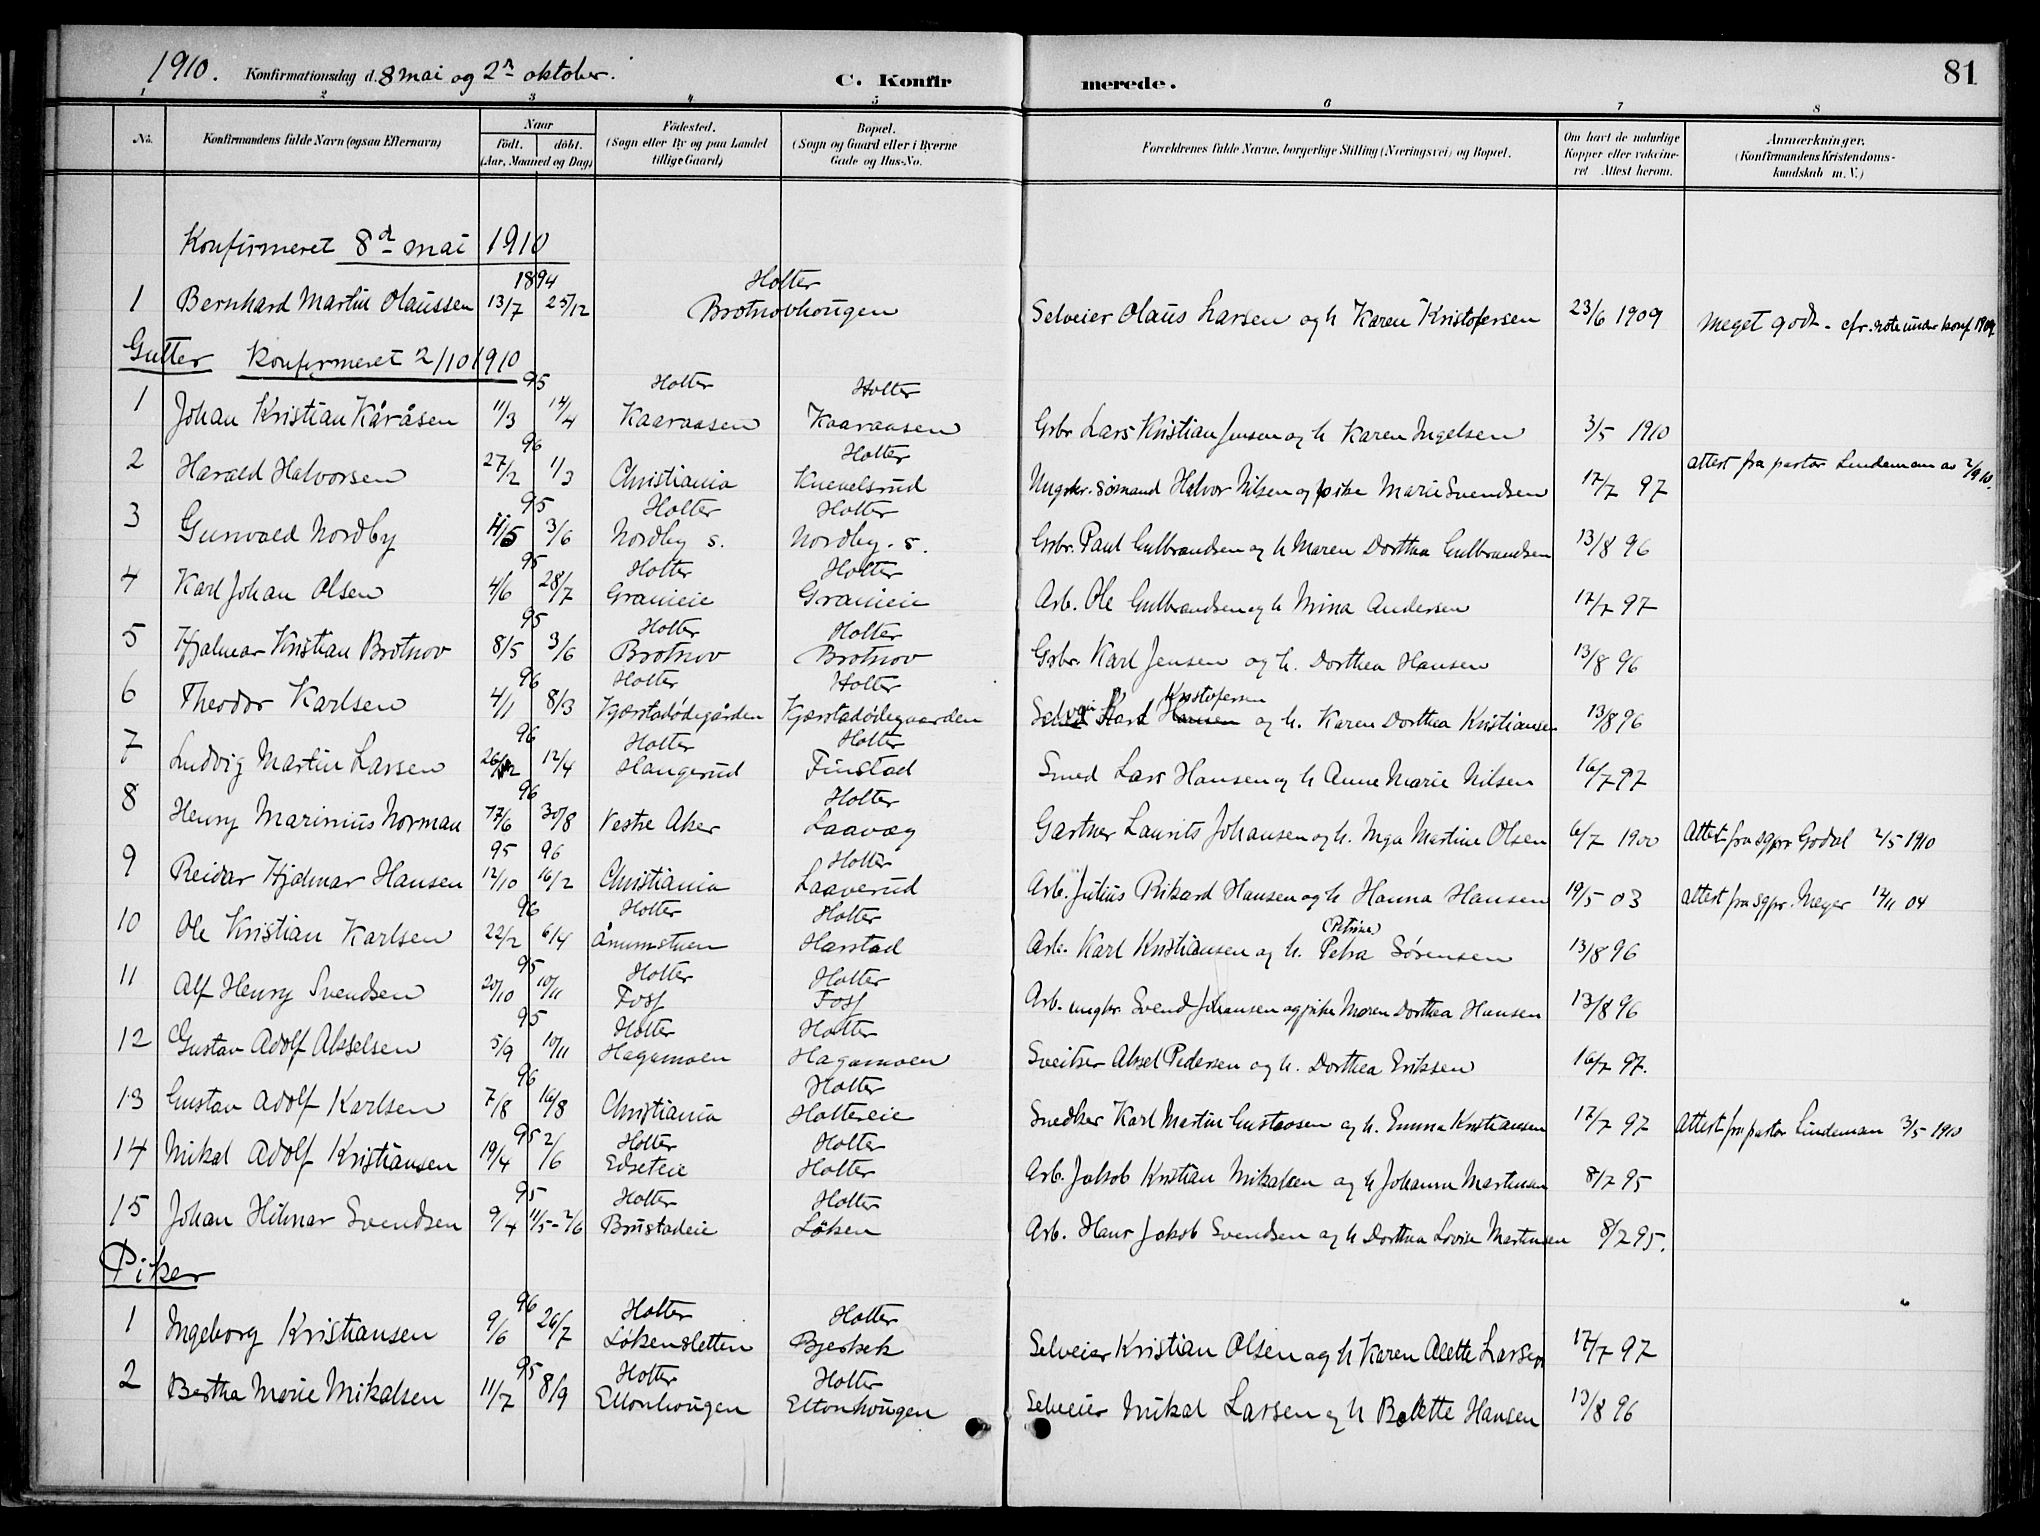 1910. Konfirmationsdag d. 8 mai og 2n oktober. C. Konfirmerede. 81
1 2 3 4 5 6 7 8
No. Konfirmandens fulde Navn (ogsaa Efternavn) Naar födt. döbt. (Aar, Maaned og Dag) Födested. (Sogn eller By og paa Landet tillige Gaard) Bopæl. (Sogn og Gaard eller i Byerne Gade og Hus-No. Forældrenes fulde Navne, borgerlige Stilling (Næringsvei) og Bopæl. Om havt de naturlige Kopper eller vakcineret Attest herom. Anmærkninger. (Konfirmandens Kristendomskundskab m. V.)
Konfirmeret 8d mai 1910
1894 Holter
1 Bernhard Martin Olaussen 13/7 25/12 Brotnovhougen Selveier Olaus Larsen og h Karen Kristofersen 23/6 1909 Meget godt - cfr. note under konf 1909
Gutter Konfirmeret 2/10 1910
95 Holter Holter
1 Johan Kristian Kåråsen 11/3 14/4 Kaaraasen Kaaraasen Grbr Lars Kristian Jensen og h Karen Ingelsen 3/5 1910
96 Holter
2 Harald Halvorsen 27/2 1/3 Christiania Knevelsrud Ungkr. sömand Halvor Nilsen og pike Marie Svendsen 17/7 97 attest fra pastor Lindeman av 2/9 10.
95 Holter Holter
3 Gunvald Nordby 11/5 3/6 Nordby s. Nordby. s. Grbr. Paul Gulbrandsen og h Maren Dorthea Gulbrandsen 13/8 96
95 Holter Holter
4 Karl Johan Olsen 4/6 28/7 Granieie Granieie Arb. Ole Gulbrandsen og h Mina Andersen 17/7 97
95 Holter Holter
5 Hjalmar Kristian Brotnov 8/5 3/6 Brotnov Brotnov Grbr. Karl Jensen og h. Dorthea Hansen 13/8 96
96 Holter Holter Kristofersen
6 Theodor Karlsen 4/1 8/3 Kjærstadödegården Kjærstadödegaarden Selvei Karl Hansen og h. Karen Dorthea Kristiansen 13/8 96
96 Holter Holter
7 Ludvig Martin Larsen 26/2 12/4 Haugerud Finstad Smed Lars Hansen og h Anne Marie Nilsen 16/7 97
96 Holter
8 Henry Marinius Norman 17/6 30/8 Vestre Aker Laavæg Gartner Laurits Johansen og h. Inga Martine Olsen 6/7 1900 Attest fra sgpr Godal 2/5 1910
95 96 Holter
9 Reidar Hjalmar Hansen 12/10 16/2 Christiania Laaverud Arb. Julius Rikard Hansen og h Hanna Hansen 19/5 03 attest fra sgpr. Meyer 14/11 04
96 Holter Holter (Petrine)
10 Ole Kristian Karlsen 22/2 6/4 Ånumstuen Harstad Arb. Karl Kristiansen og h. Petra Sørensen 13/8 96
95 Holter Holter
11 Alf Henry Svendsen 20/10 10/11 Foss Foss Arb. ungkr. Svend Johansen og pike Maren Dorthea Hansen 13/8 96
95 Holter Holter
12 Gustav Adolf Akselsen 5/9 10/11 Hagamoen Hagamoen Sveitser Aksel Pedersen og h. Dorthea Eriksen 16/7 97.
96 Holter
13 Gustav Adolf Karlsen 7/8 16/8 Christiania Holtereie Snedker Karl Martin Gustavsen og h. Emma Kristiansen 17/7 97 Attest fra pastor Lindeman 3/5 1910
95 Holter Holter
14 Mikal Adolf Kristiansen 19/4 2/6 Edseteie Holter Arb. Jakob Kristian Mikalsen og h Johanne Martinsen 8/7 95
95 Holter Holter
15 Johan Hilmar Svendsen 9/4 11/5 - 2/6 Brustadeie Løken Arb. Hans Jakob Svendsen og h Dorthea Lovise Martinsen 8/7 95.
Piker
96 Holter Holter
1 Ingeborg Kristiansen 9/6 26/7 Løkensletten Bjerkek Selveier Kristian Olsen og h Karen Alette Larsen 17/7 97
95 Holter Holter
2 Bertha Marie Mikalsen 11/7 8/9 Eltonhougen Eltonhougen Selveier Mikal Larsen og h Bolette Hansen 13/8 96